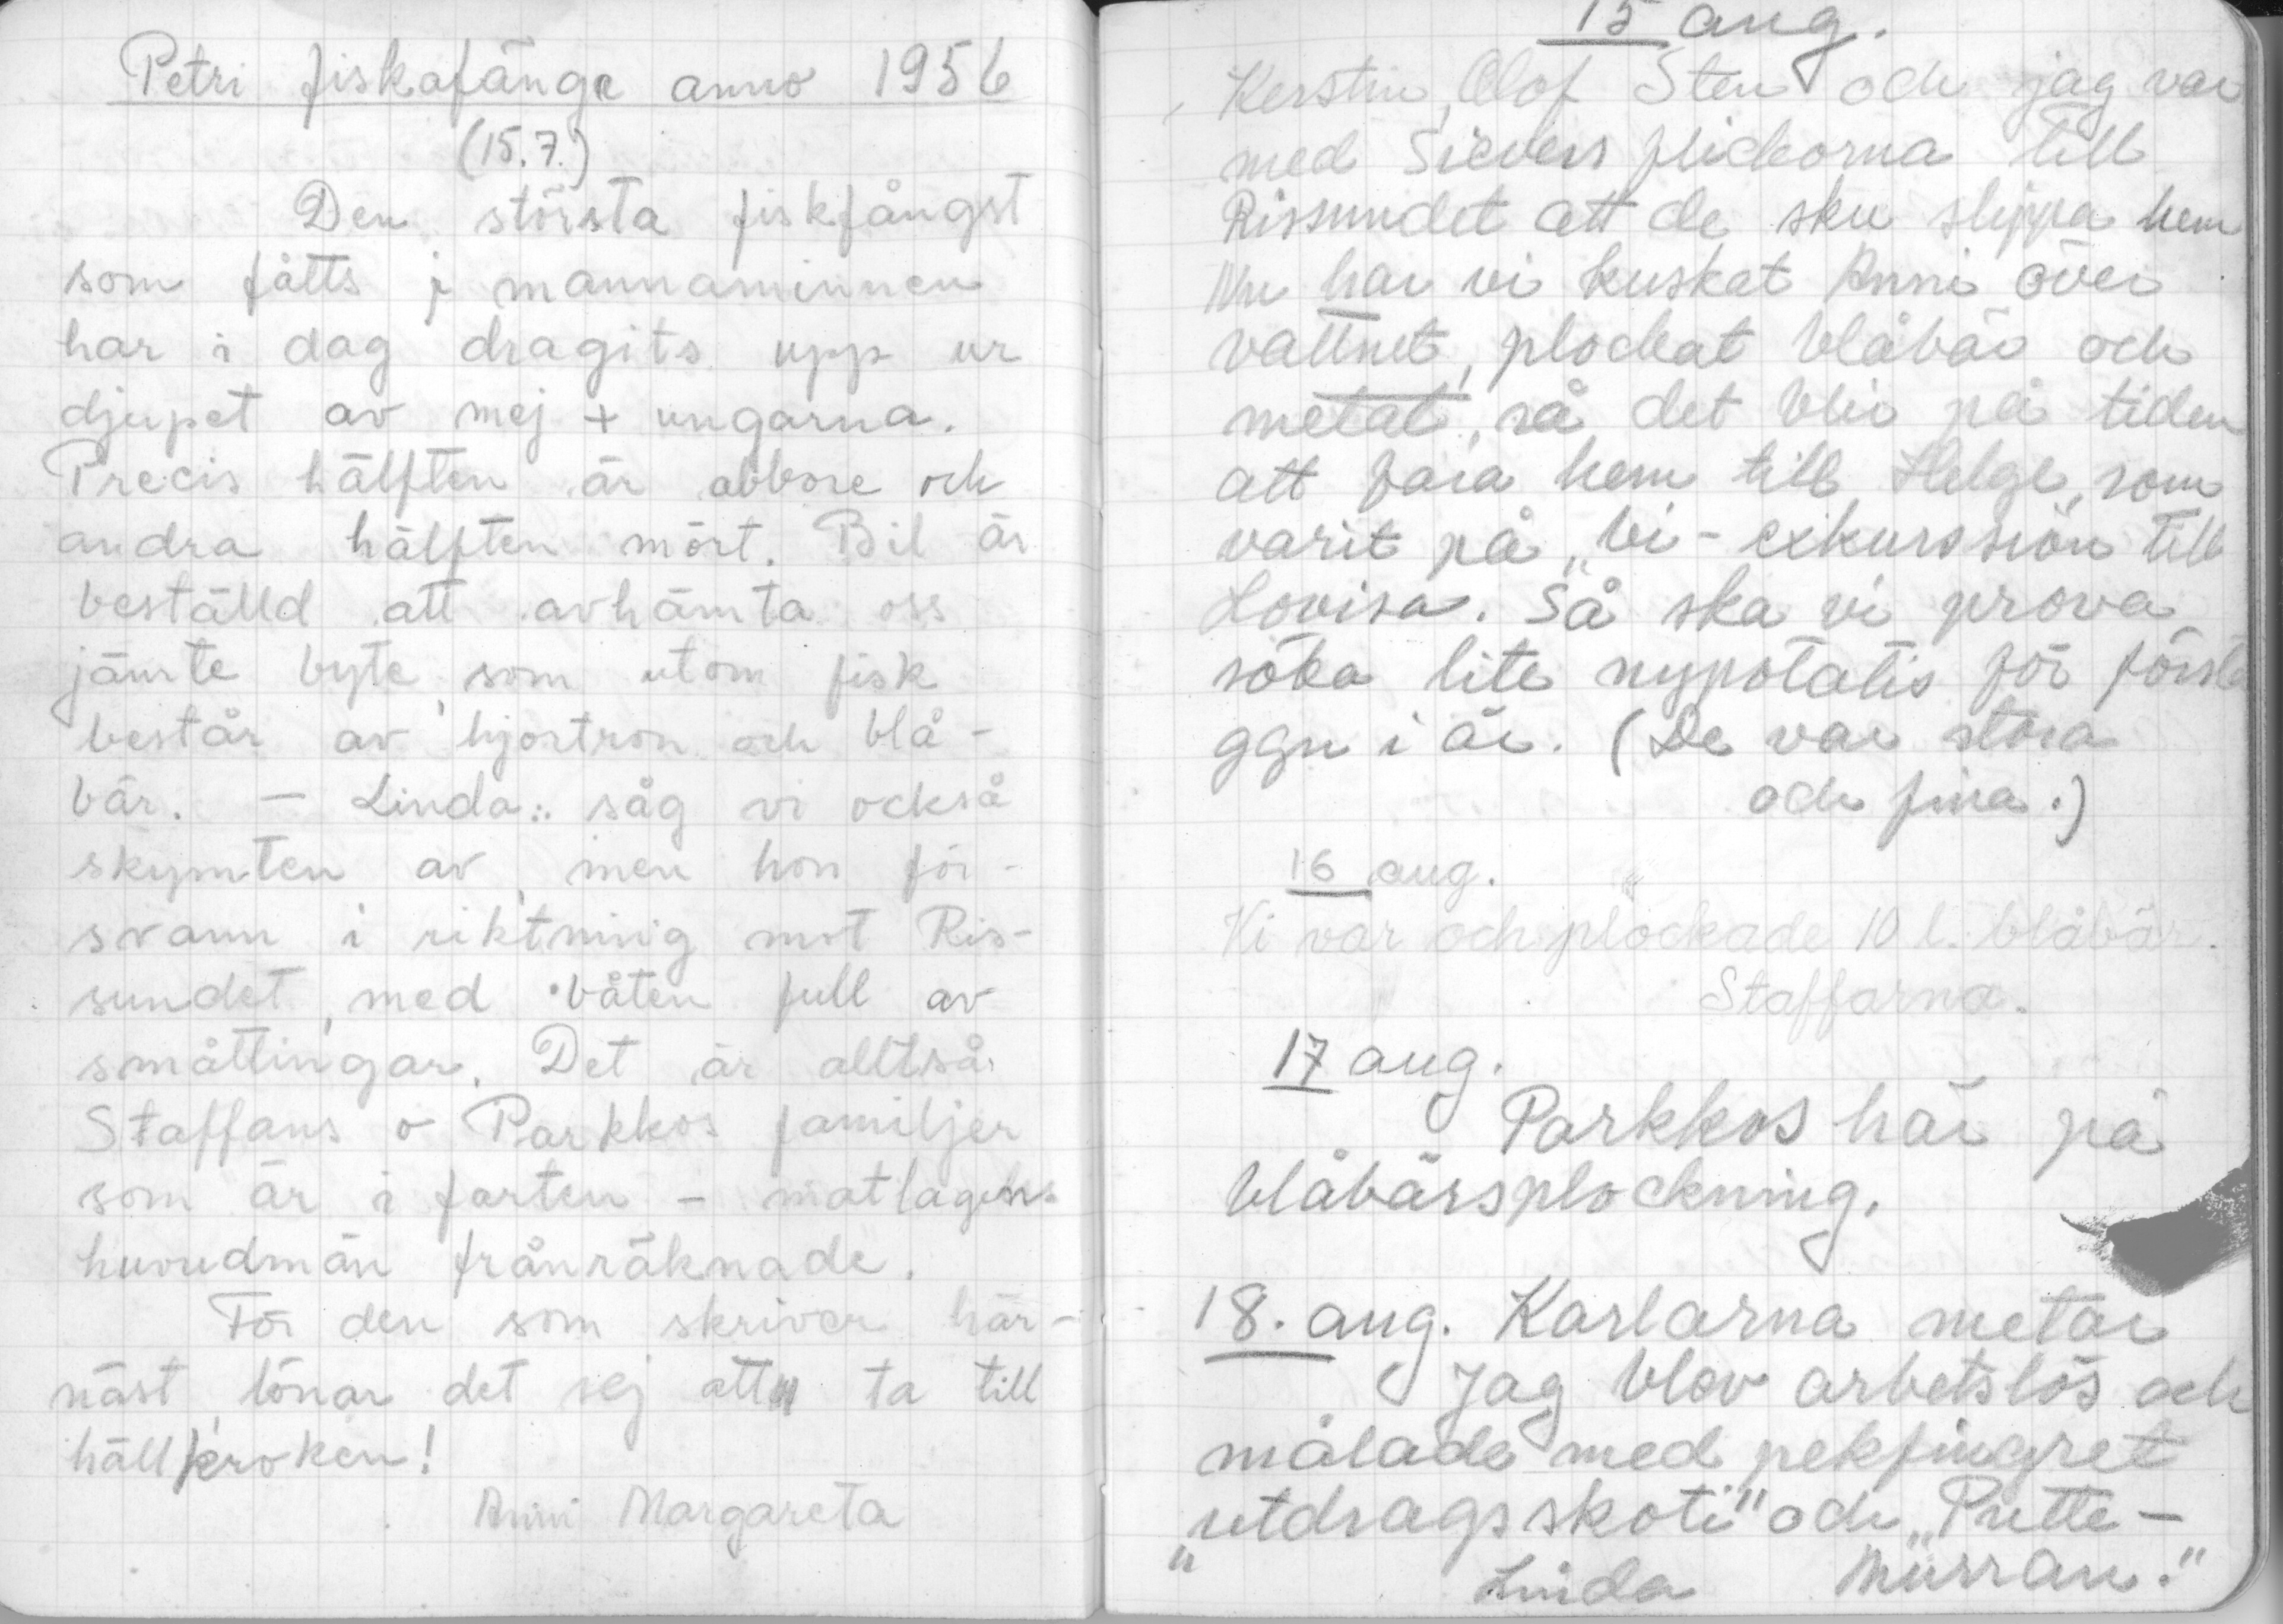 Petri fiskafänge anno 1956
(15.7.)
Den största fiskfångst
som fåtts i mannaminnen
har i dag dragits upp ur
djupet av mej + ungarna.
Precis hälften är abbore och
andra hälften mört. Bil är
beställd att avhämta oss
jämte byte, som utom fisk
består av hjortron och blå-
bär. — Linda: såg vi också
skymten av, men hon för-
svann i riktning mot Ris-
sundet, med båten full av
småttingar. Det är alltså
Staffans o Parkkos familjer
som är i farten – matlagens
huvudmän frånräknade.
För den som skriver här-
näst, lönar det sej att ta till
hällkroken!
Anni Margareta
15 aug.
Kerstin, Olof Sten och jag var
med Sievers flickorna till
Rissundet att de sku slippa hem
Nu har vi kuskat Anni över
vattnet, plockat blåbär och
metat, så det blir på tiden
att fara hem till Helge, som
varit på „bi-exkurssion till
Lovisa. Så ska vi prova
söka lite nypotatis för första
ggn i år. (De var stora
och fina.)
16 aug.
Vi var och plockade 10 l. blåbär.
Staffarna.
17 aug.
Parkkos här på
blåbärsplockning.
18. aug. Karlarna metar
Jag blev arbetslös och
målade med pekfingret
„utdragsskoti" och „Putte-
Linda Murran."